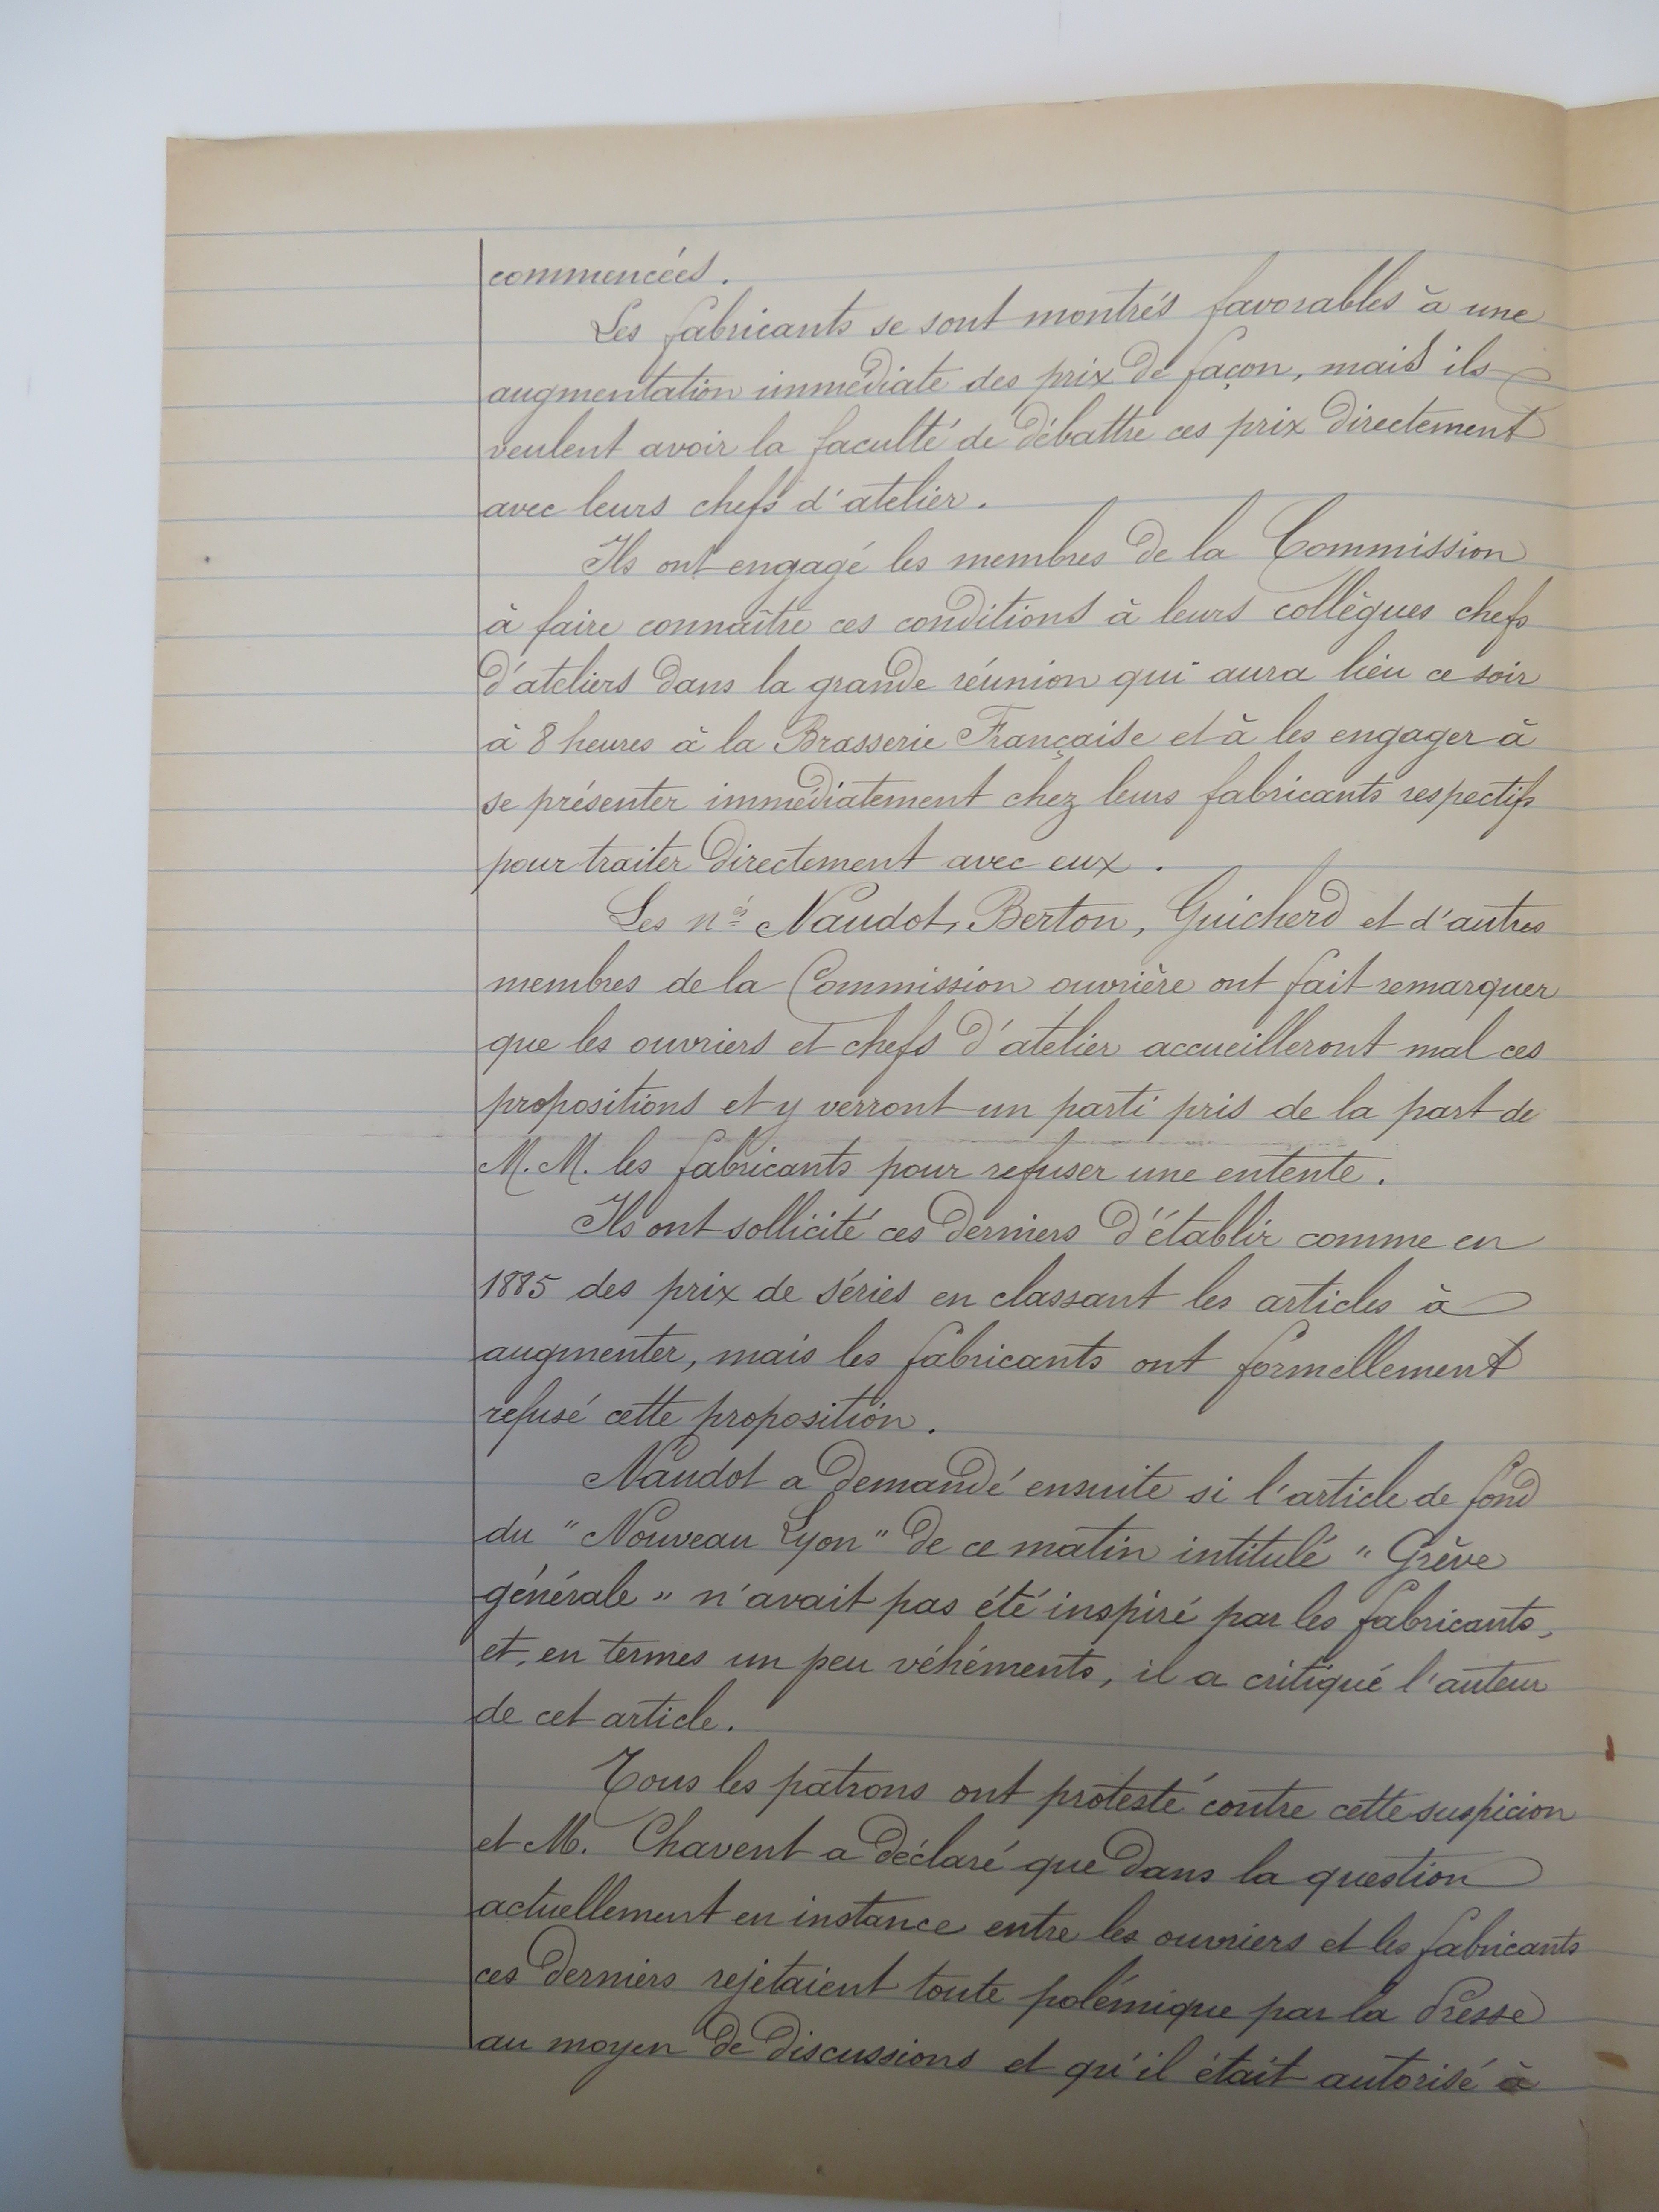 commencées.
Les fabricants se sont montrés favorables à une
augmentation immédiate des prix de façon, mais ils
veulent avoir la faculté de débattre ces prix directement
avec leurs chefs d'atelier.
Ils ont engagé les membres de la Commission
à faire connaître ces conditions à leurs collègues chefs
d'ateliers dans la grande réunion qui aura lieu ce soir
à 8 heures à la Brasserie Française et à les engager à
se présenter immédiatement chez leurs fabricants respectifs
pour traiter directement avec eux.
Les nés Naudot, Berton, Guicherd et d'autres
membres de la Commission ouvrière ont fait remarquer
que les ouvriers et chefs d'atelier accueilleront mal ces
propositions et y verront un parti pris de la part de
M.M. les fabricants pour refuser une entente.
Ils ont sollicité ces derniers d'établir comme en
1885 des prix de séries en classant les articles à
augmenter, mais les fabricants ont formellement
refusé cette proposition.
Naudot a demandé ensuite si l'article de fond
du "Nouveau Lyon" de ce matin intitulé "Grève
générale" n'avait pas été inspiré par les fabricants,
et, en termes un peu véhéments, il a critiqué l'auteur
de cet article.
Tous les patrons ont protesté contre cette suspicion
et M. Chavent a déclaré que dans la question
actuellement en instance entre les ouvriers et les fabricants
ces derniers rejetaient toute polémique par la Presse
au moyen de discussions et qu'il était autorisé à